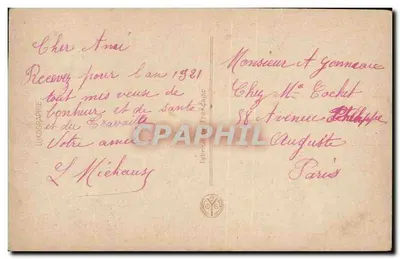 Cher Ami
Recevez pour l'an 1921
tout mes veux de
bonheur et de santé
et du Travaille
Votre amie
L Méhaux
Monsieur A Yonneau
Chez Mr Cochet
58 Avenue Philippe
Auguste
Paris
CPARAMA.COM